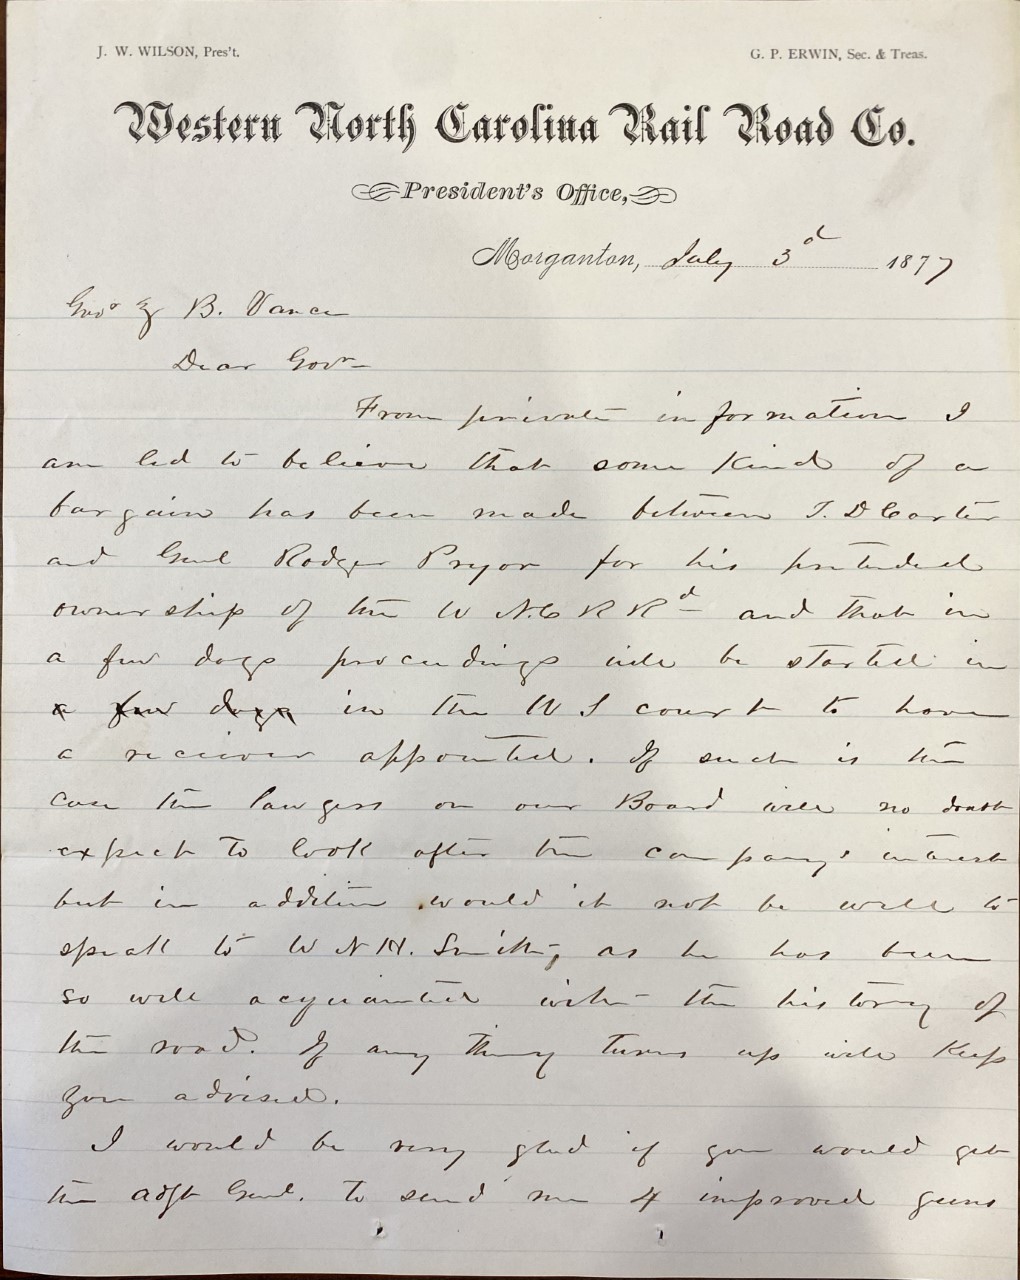 J. W. WILSON, Pres't.
G. P. ERWIN, Sec. & Treas.
Western North Carolina Rail Road Co.
President's Office,
Morganton, July 3d 1877
Govr Z B. Vance
Dear Govr
From private information I
am led to believe that some kind of a
bargain has been made between T. D Carter
and Genl Rodger Pryor for his pretended
ownership of the W N.C R Rd and that in
a few days proceedings will be started in
a few days in the U S court to have
a reciever appointed. If such is the
case the lawyers on our Board will no doubt
expect to look after the company's interest
but in addition would it not be well to
speak to W N H. Smith, as he has been
so well acquainted with the history of
the road. If any thing turns up will keep
you advised.
I would be very glad if you would get
the adjt Genl. to send me 4 improved guns